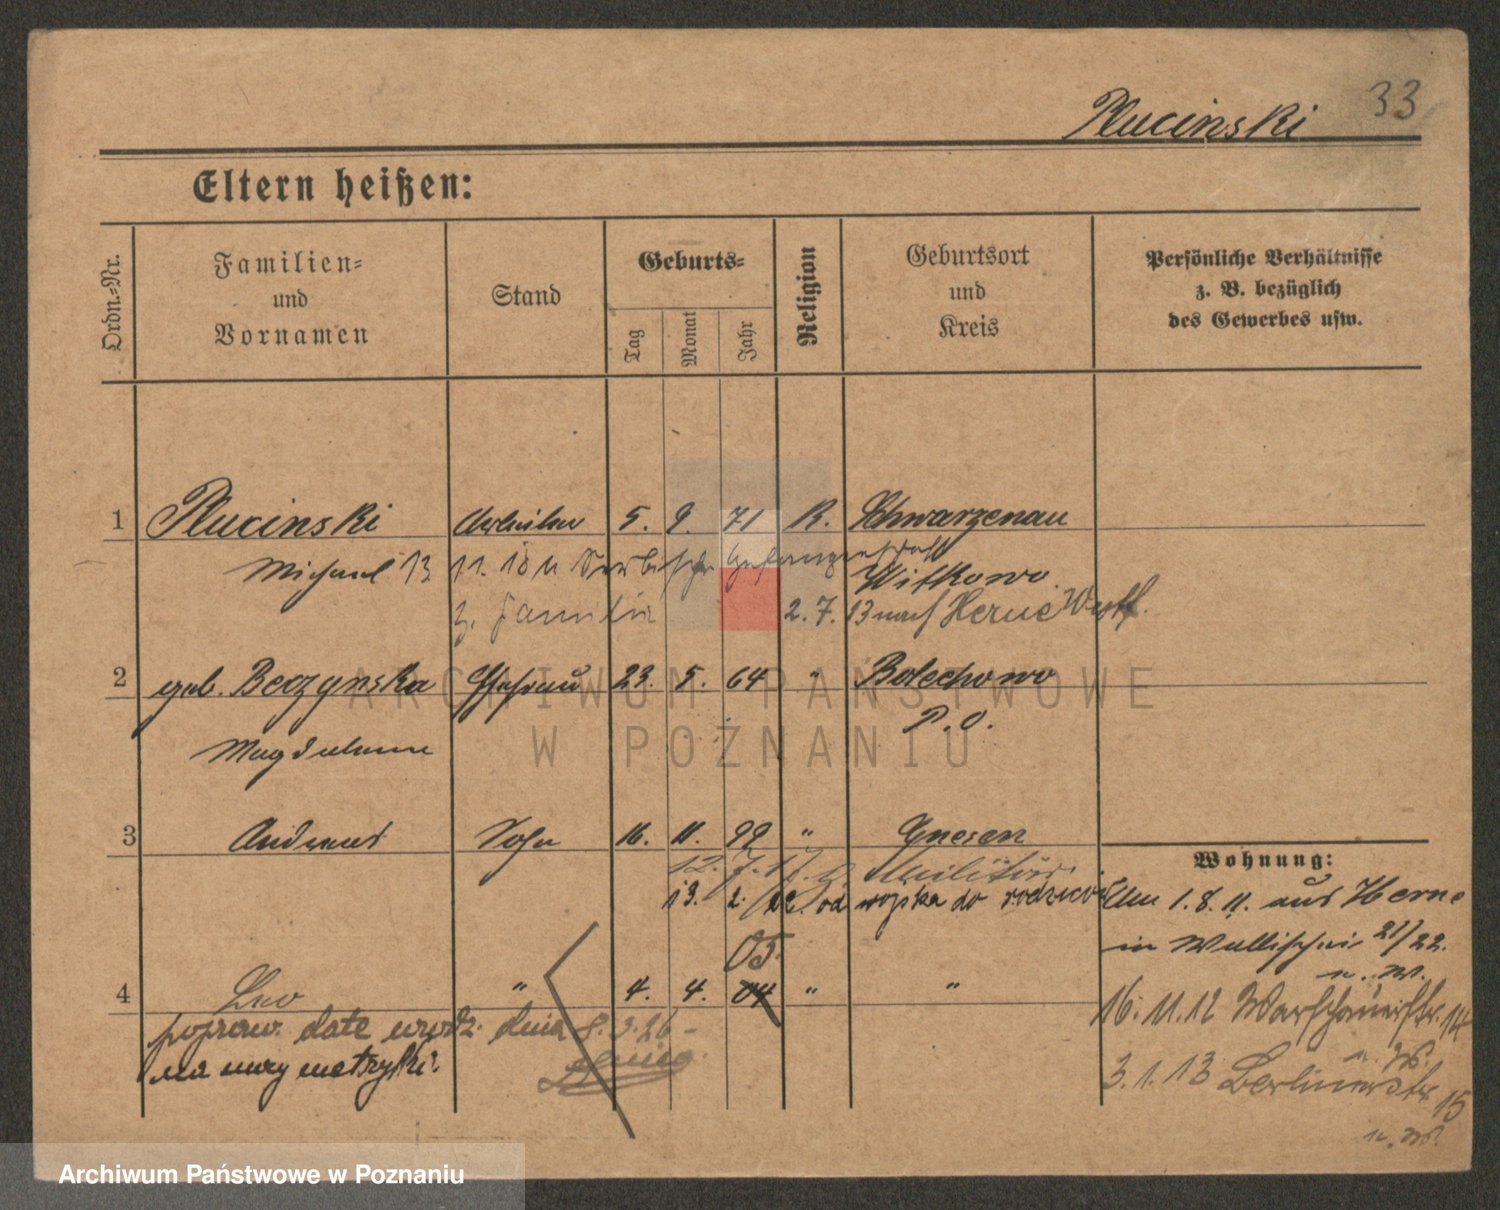 33
Plucinski
Eltern heißen:
Ordn.-Nr.
Familien-
und
Vornamen
Stand
Geburts-
Tag
Monat
Jahr
Religion
Geburtsort
und
Kreis
Persönliche Verhältnisse
z. B. bezüglich
des Gewerbes usw.
1 Plucinski Arbeiter 5. 9. 71 R. Schwarzenau
Michael 13. 11. 18
Witkowo
z. Familie 2. 7. 13 nach Herne Westf.
2 geb. Beczynska Ehefrau 23. 5. 64 " Bolechowo
P. O.
Magdalena
3 Andreas Sohn 16. 11. 99 " Gnesen
12. 7. 17. z Militär.
13. 2. 22. od wojska do rodziców
Wohnung:
Am 1. 8. 11. aus Herne
in Wallischei 21/22.
n. W.
05.
4 Leo " 4. 4. 04 " "
popraw. date urodz. dnia 8. 3. 26 -
na mocy metryki
16. 11. 12 Warschauerstr. 14
n. W.
3. 1. 13 Berlinerstr. 15
n. W.
ARCHIWUM PAŃSTWOWE
W POZNANIU
Archiwum Państwowe w Poznaniu